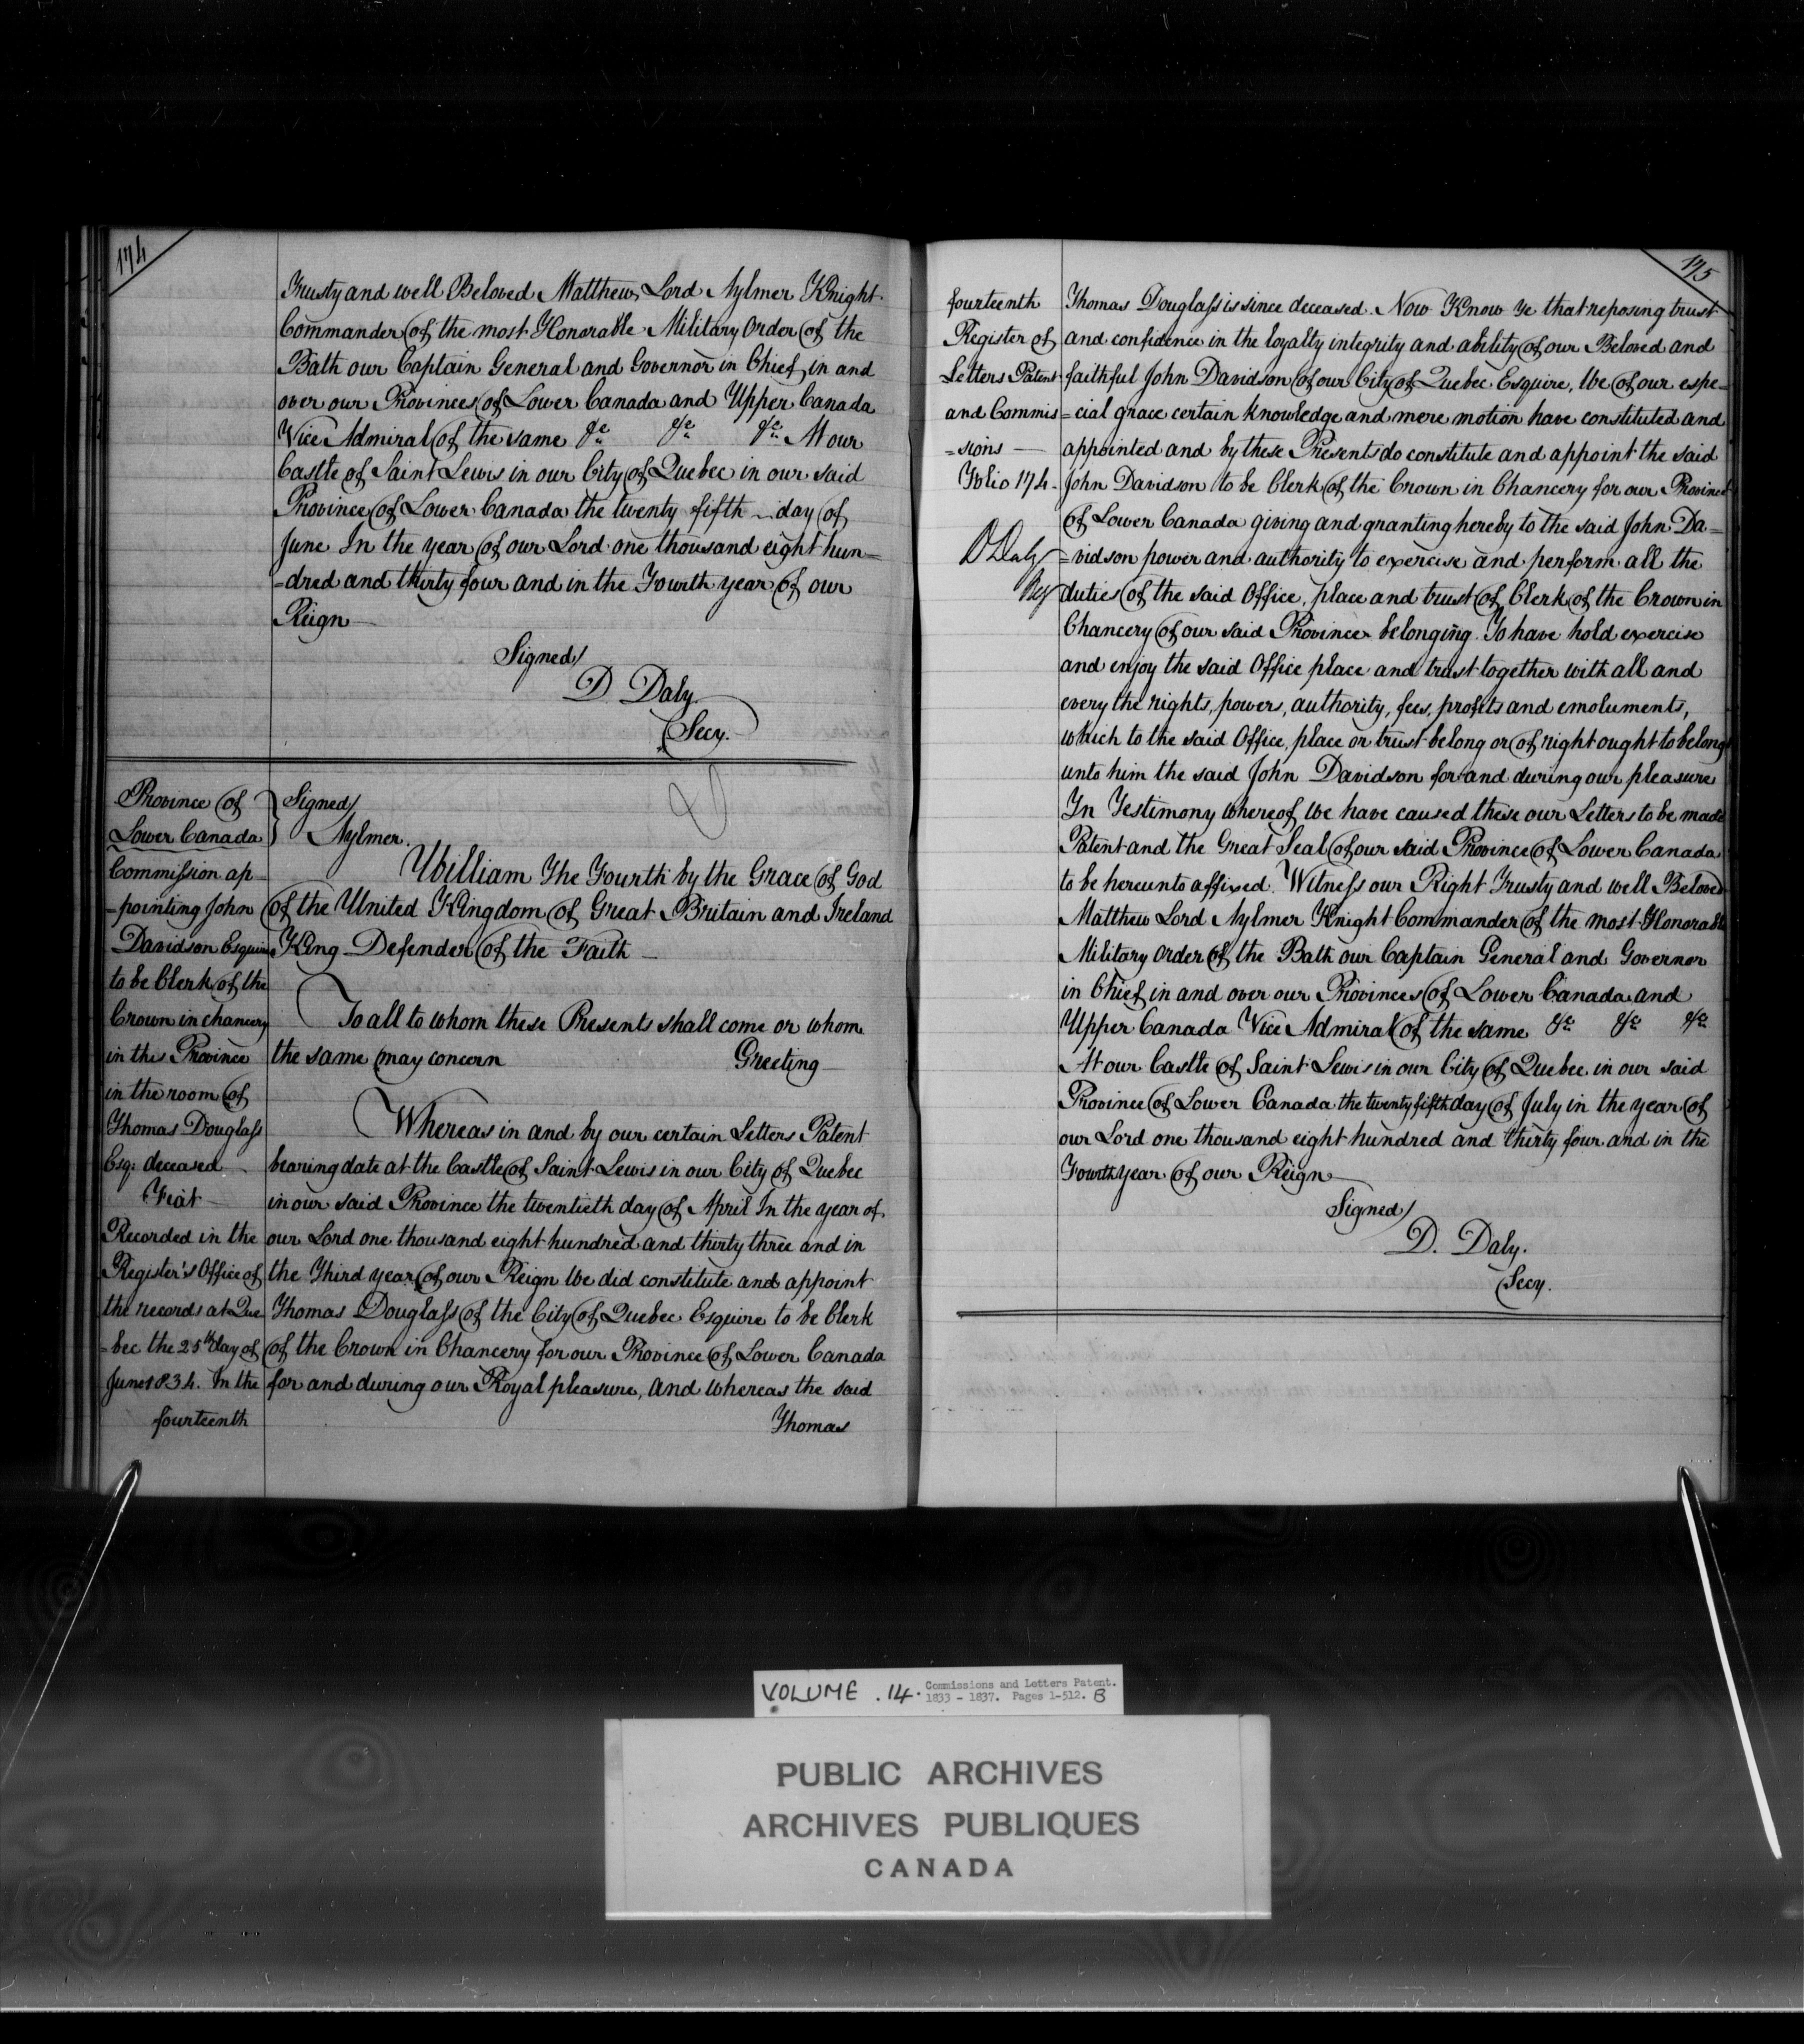 174
Trusty and well Beloved Matthew Lord Aylmer Knight
Commander of the most Honorable Military Order of the
Bath our Captain General and Governor in Chief in and
over our Provinces of Lower Canada and Upper Canada
Vice Admiral of the same &c &c &c At our
Castle of Saint Lewis in our City of Quebec in our said
Province of Lower Canada the twenty fifth day of
June In the year of our Lord one thousand eight hun=
=dred and thirty four and in the Fourth year of our
Reign
Signed/
D. Daly.
Secy.
Province of
Lower Canada
Commission ap
=pointing John
Davidson Esquire
to be Clerk of the
Crown in chancery
in this Province
in the room of
Thomas Douglass
Esq: deceased
Fiat
Recorded in the
Register's Office of
the records at Que
=bec the 25th day of
June 1834. In the
fourteenth
Signed/
Aylmer.
William The Fourth by the Grace of God
of the United Kingdom of Great Britain and Ireland
King Defender of the Faith
To all to whom these Presents shall come or whom
the same may concern Greeting
Whereas in and by our certain Letters Patent
bearing date at the Castle of Saint Lewis in our City of Quebec
in our said Province the twentieth day of April In the year of
our Lord one thousand eight hundred and thirty three and in
the Third year of our Reign We did constitute and appoint
Thomas Douglass of the City of Quebec Esquire to be Clerk
of the Crown in Chancery for our Province of Lower Canada
for and during our Royal pleasure, and whereas the said
Thomas
175
fourteenth
Register of
Letters Patent
and Commis
=sions
Folio 174
D Daly
Reg
Thomas Douglass is since deceased. Now Know Ye that reposing trust
and confidence in the loyalty integrity and ability of our Beloved and
faithful John Davidson of our City of Quebec Esquire, We of our espe=
=cial grace certain knowledge and mere motion have constituted and
appointed and by these Presents do constitute and appoint the said
John Davidson to be Clerk of the Crown in Chancery for our Province
of Lower Canada giving and granting hereby to the said John Da=
=vidson power and authority to exercise and perform all the
duties of the said Office, place and trust of Clerk of the Crown in
Chancery of our said Province belonging. To have hold exercise
and enjoy the said Office place and trust together with all and
every the rights, powers, authority, fees, profits and emoluments,
which to the said Office, place or trust belong or of right ought to belong
unto him the said John Davidson for and during our pleasure
In Testimony whereof We have caused these our Letters to be made
Patent and the Great Seal of our said Province of Lower Canada
to be hereunto affixed. Witness our Right Trusty and well Beloved
Matthew Lord Aylmer Knight Commander of the most Honorable
Military Order of the Bath our Captain General and Governor
in Chief in and over our Provinces of Lower Canada and
Upper Canada Vice Admiral of the same &c &c &c
At our Castle of Saint Lewis in our City of Quebec in our said
Province of Lower Canada the twenty fifth day of July in the year of
our Lord one thousand eight hundred and thirty four and in the
Fourth year of our Reign
Signed/
D. Daly.
Secy.
VOLUME .14. Commissions and Letters Patent.
1833 - 1837. Pages 1-512. B
PUBLIC ARCHIVES
ARCHIVES PUBLIQUES
CANADA